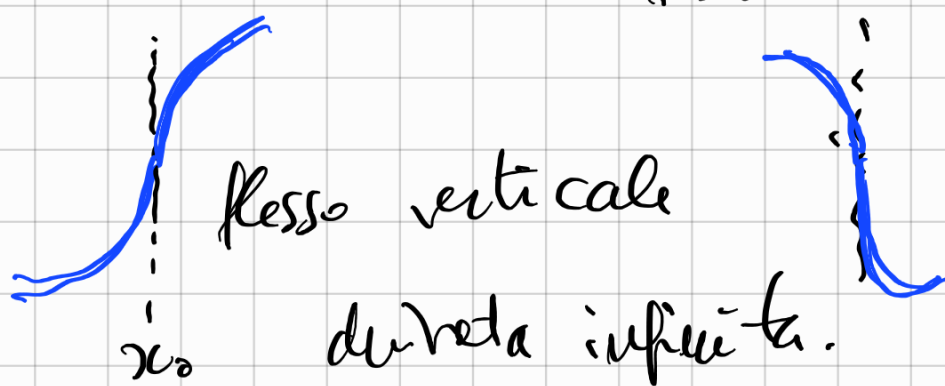 flesso verticale
x₀ derivata infinita.